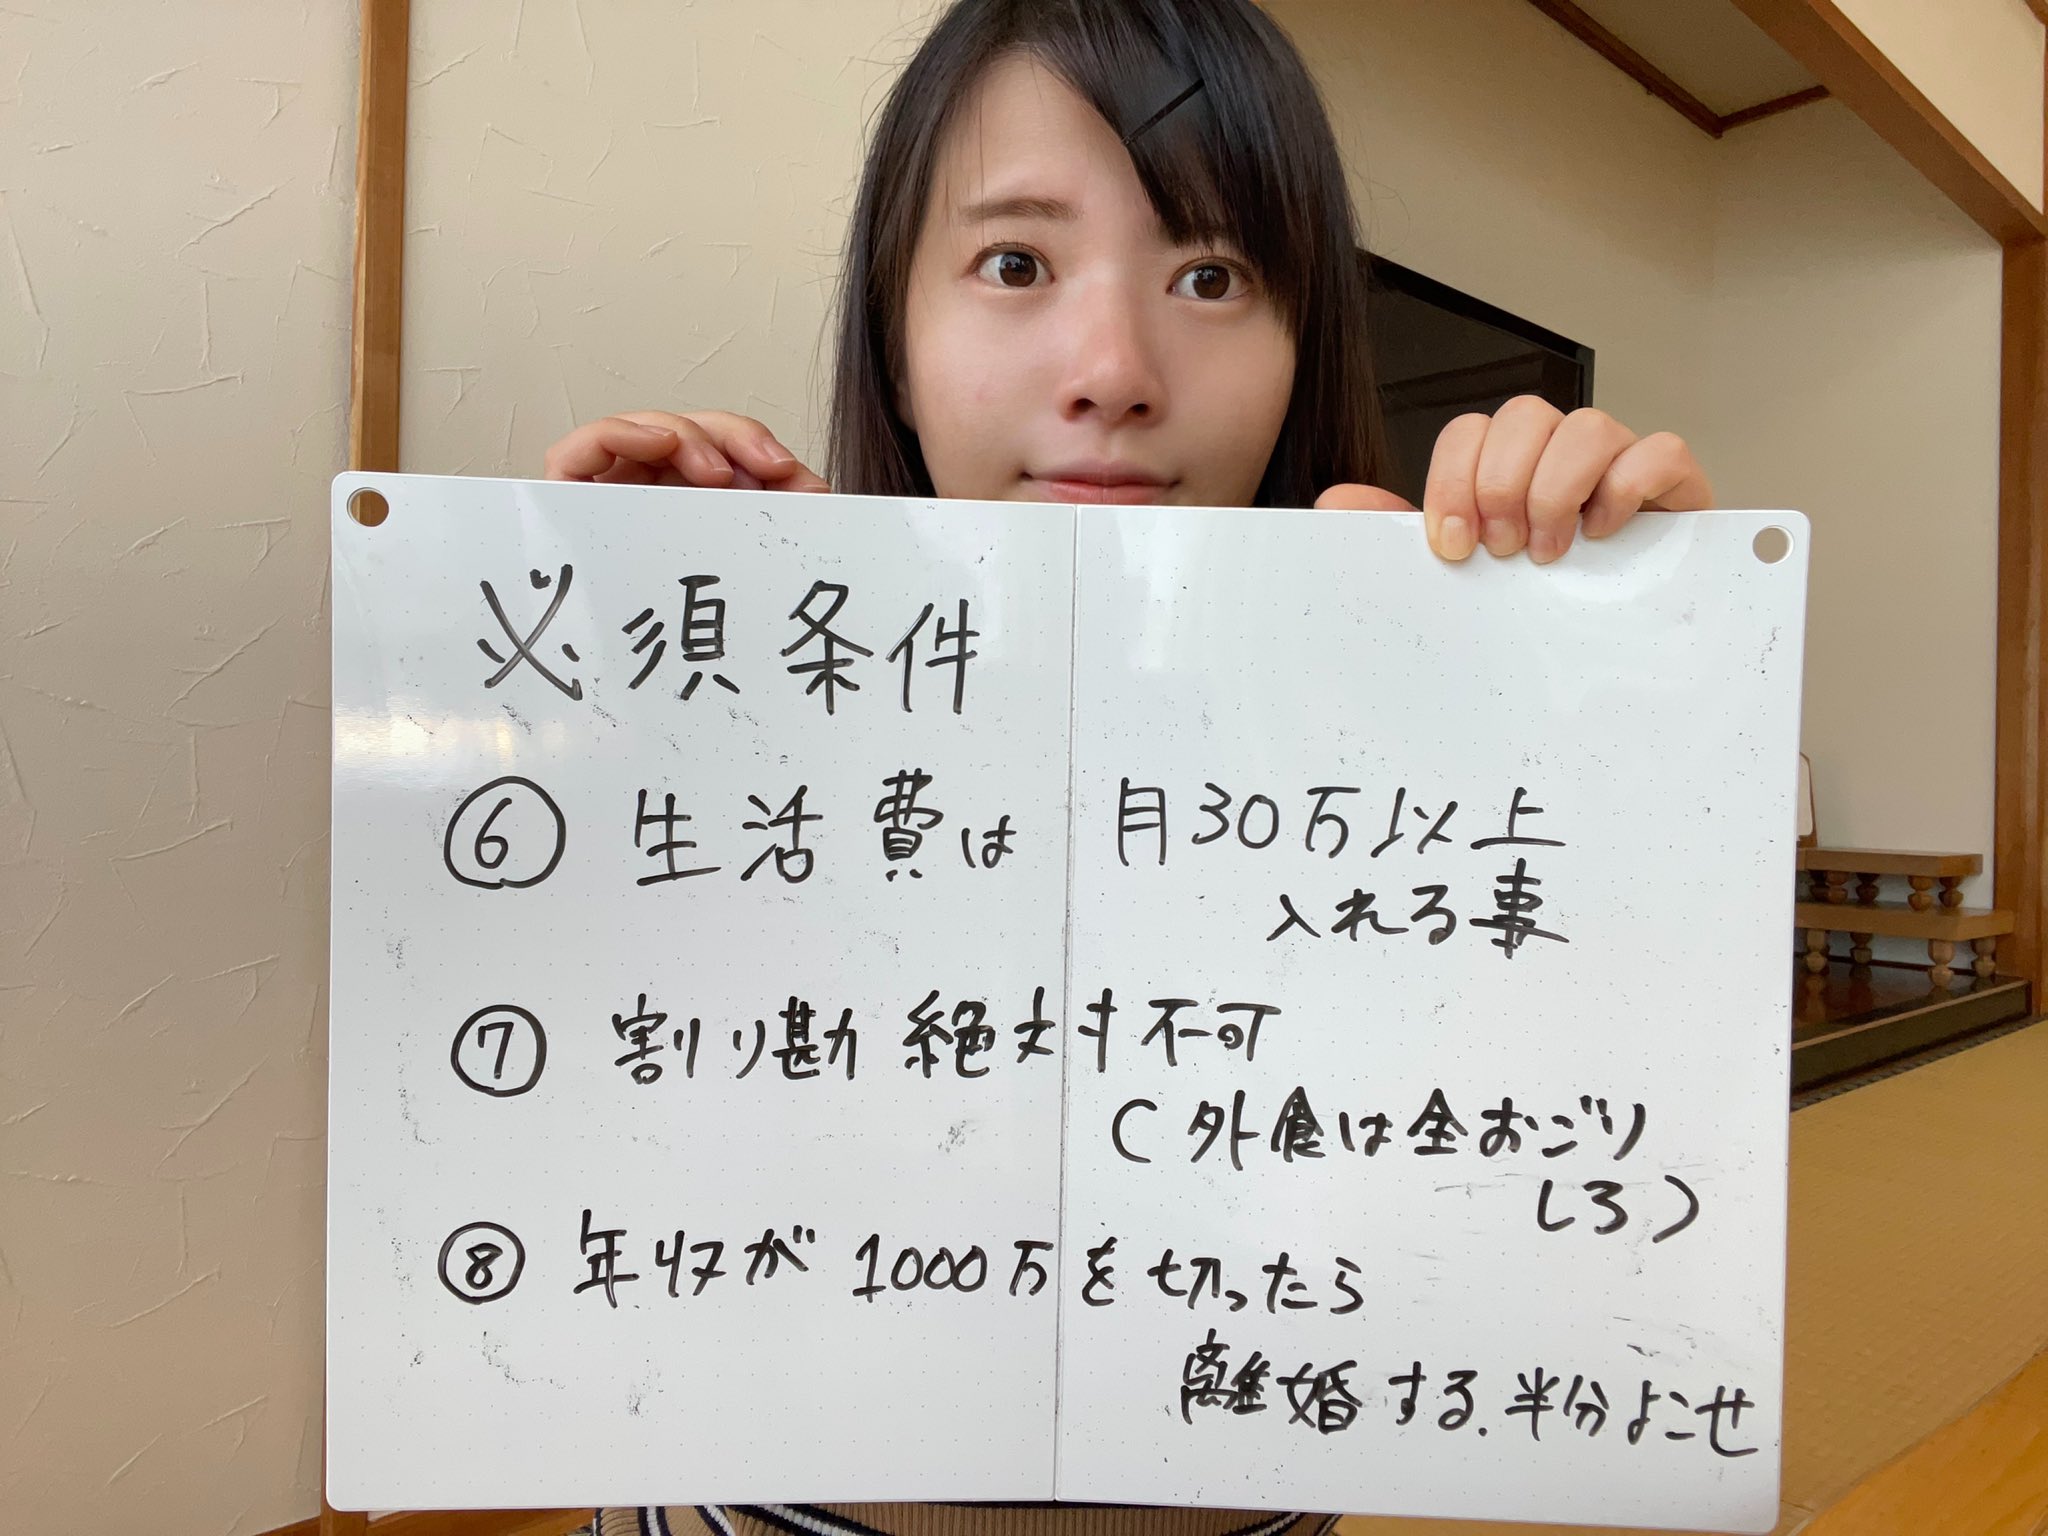 必須条件
⑥ 生活費は 月30万以上
入れる事
⑦ 割り勘 絶対不可
(外食は全おごり
しろ)
⑧ 年収が 1000万を切ったら
離婚する.半分よこせ